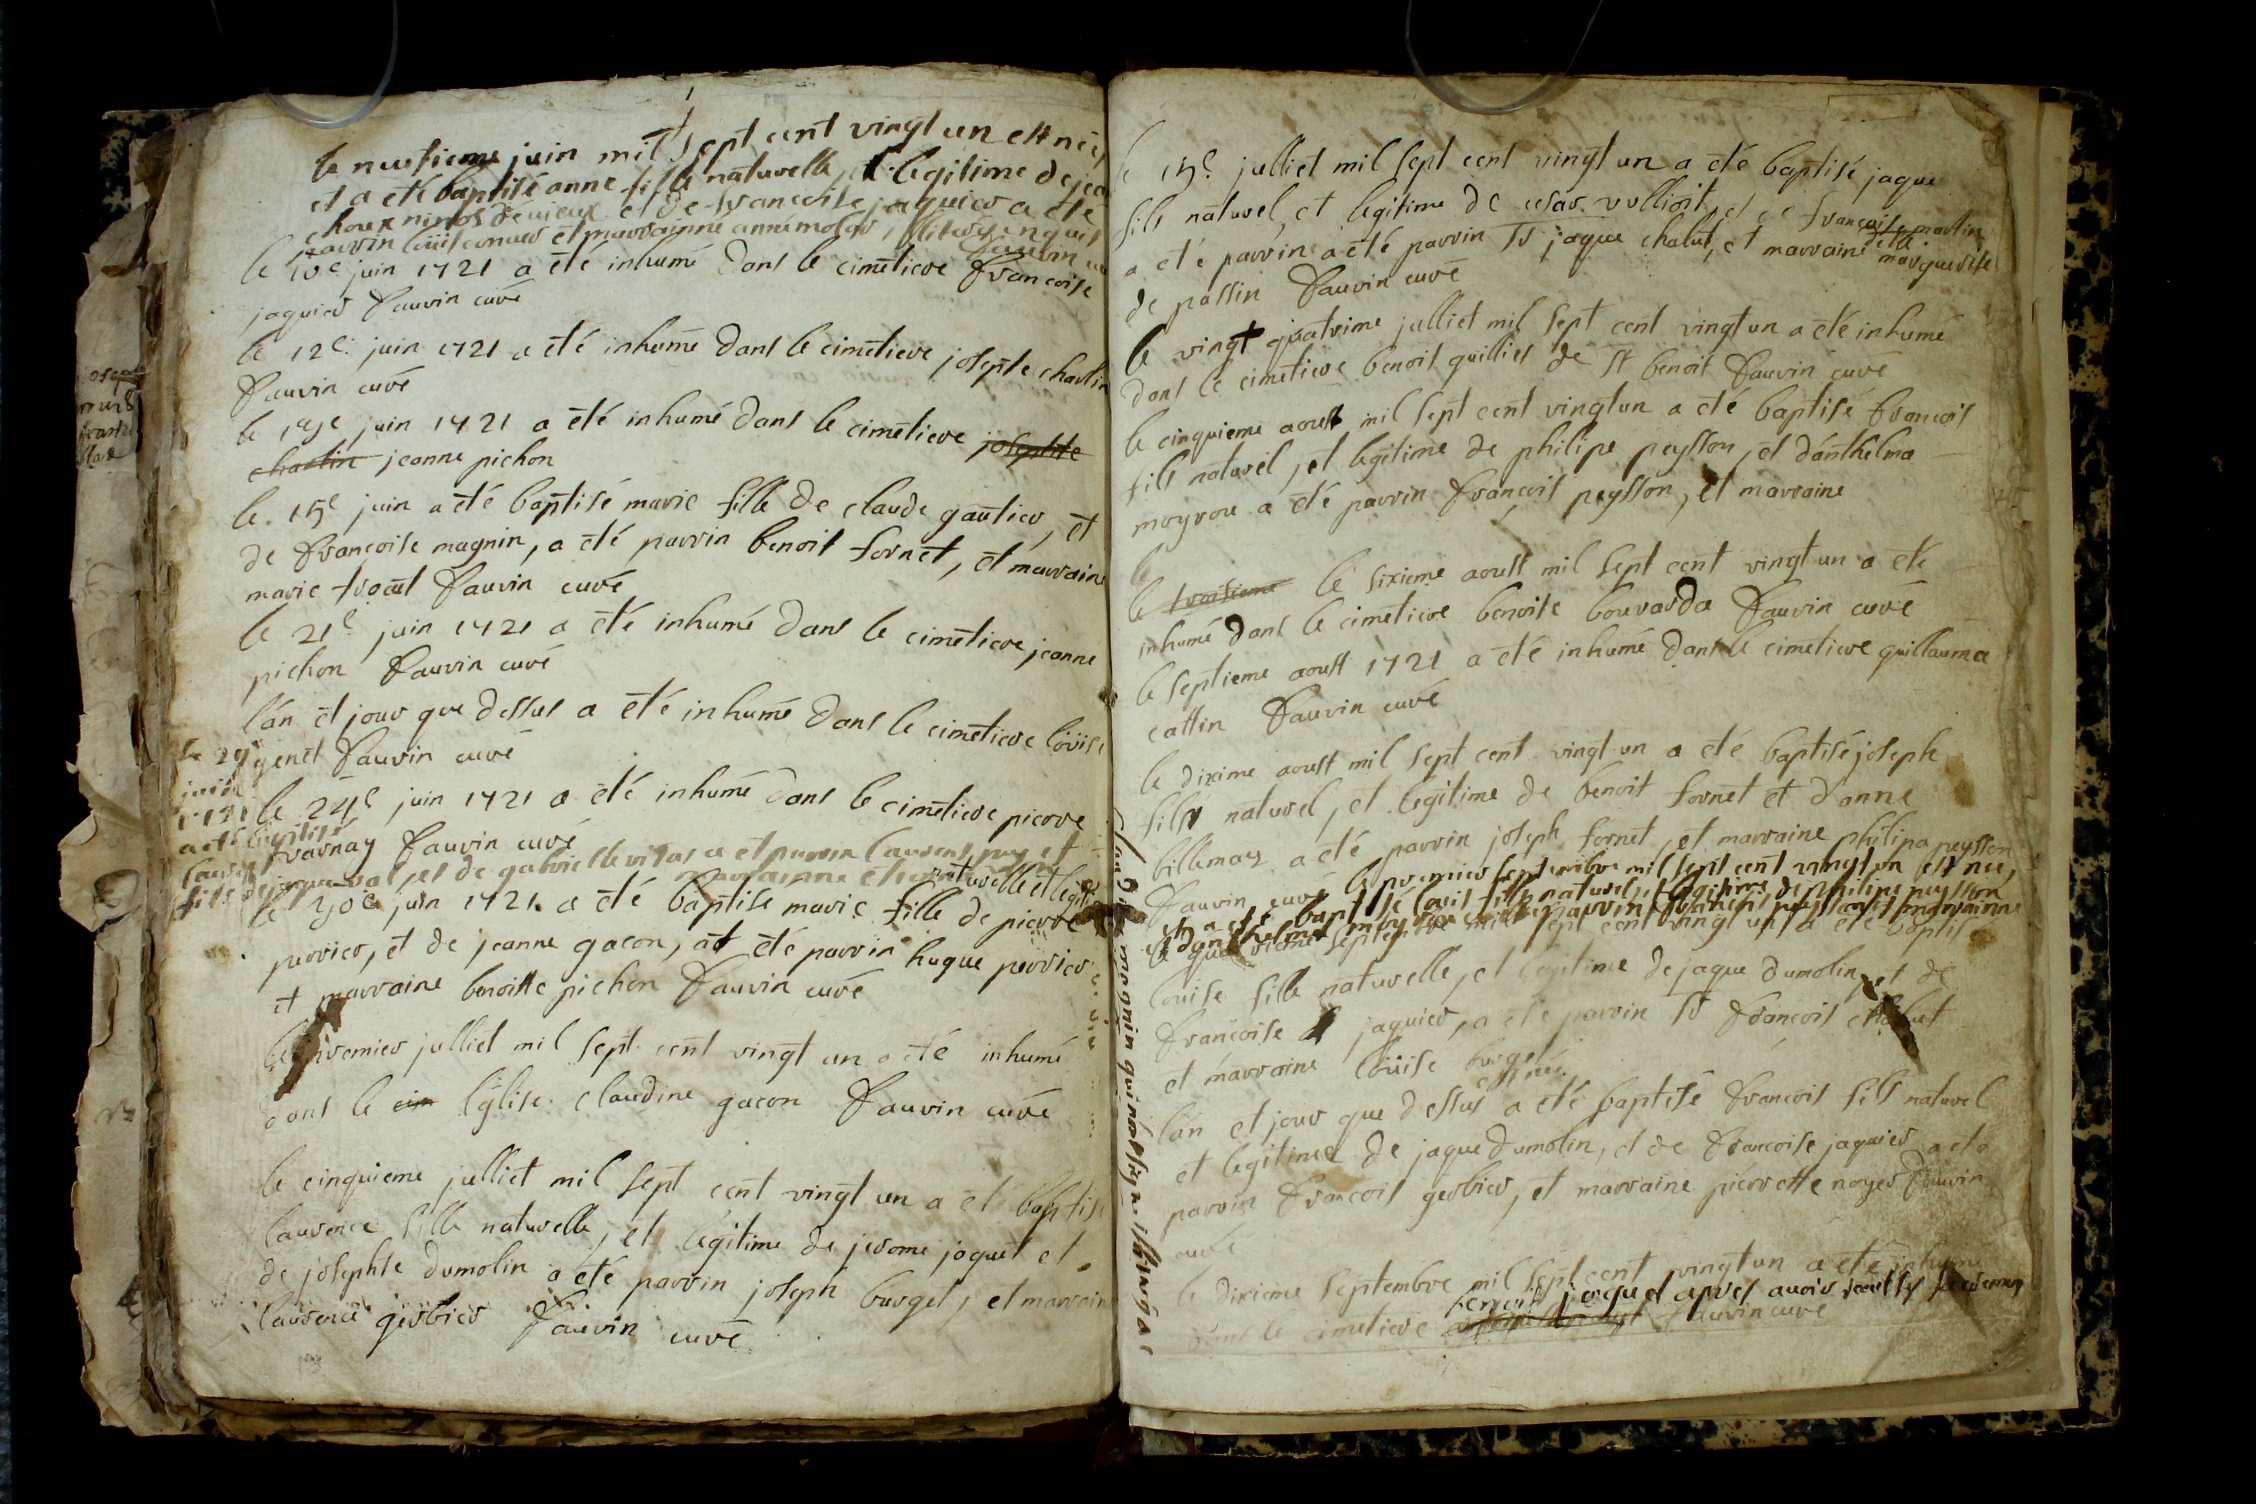 le neufieme juin mil sept cent vingt un est née
et a été baptisé anne fille naturelle, et legitime de jean
choux et de francoise jaquier a été
parrin loüis et marrainne anne
le 10e juin 1721 a été inhumé dans le cimetiere francoise
jaquier fauvin curé
le 12e juin 1721 a été inhumé dans le cimetiere josepte charlin
fauvin curé
le juin 1721 a été inhumé dans le cimetiere josephte
charlin jeanne pichon
le 15e juin a été baptisé marie fille de claude gautier, et
de francoise magnin, a été parrin benoit fornet, et marraine
marie fauvin curé
le 21e juin 1721 a été inhumé dans le cimetiere jeanne
pichon fauvin curé
l'an et jour que dessus a été inhumé dans le cimetiere loüise
genet fauvin curé
le 29
juin
1721
a été baptisé
laurent
fils de jaque et de gabrielle et parrin laurent puy et
marrainne
le 24e juin 1721 a été inhumé dans le cimetiere pierre
fauvin curé
naturelle et legitime
le 30e juin 1721 a été baptise marie fille de pierre
perrier, et de jeanne gacon, a été parrin hugue perrier
et marraine benoitte pichon fauvin curé
le premier julliet mil sept cent vingt un a été inhumé
dans le cim l'église claudine gacon fauvin curé
le cinquieme julliet mil sept cent vingt un a été baptisé
laurence fille naturelle, et legitime de jerome joquet et
de josephte dumolin a été parrin joseph burget, et marraine
laurence gerbier fauvin curé
le 15e julliet mil sept cent vingt un a été baptisé jaque
fils naturel, et legitime de cesar vullioit, et de francoise martin
a été parrin a été parrin Sr jaque chalut, et marraine marguerite
de passin fauvin curé
le vingt quatrime julliet mil sept cent vingt un a été inhumé
dans le cimetiere benoit quillies de St benoit fauvin curé
le cinquieme aoust mil sept cent vingt un a été baptisé francois
fils naturel, et legitime de philipe peysson, et d'anthelma
moyrou a été parrin francois peysson, et marraine
le
le troisieme le sixieme aoust mil sept cent vingt un a été
inhumé dans le cimetiere benoite bouvarda fauvin curé
le septieme aoust 1721 a été inhumé dans le cimetiere guillauma
cattin fauvin curé
le dixime aoust mil sept cent vingt un a été baptisé joseph
fils naturel, et legitime de benoit fornet et d'anne
billemaz a été parrin joseph fornet, et marraine philipa peysson
fauvin curé le premier septembre mil sept cent vingt un est née,
et a été baptisé loüis fils naturel, et legitime de philipe peysson
et d'anthelma parrin francois peysson et marrainne
le quatrieme septembre mil sept cent vingt un a été baptisé
louise fille naturelle, et legitime de jaque dumolin, et de
francoise jaquier, a été parrin Sr francois chalut
et marraine loüise burget
est née
l'an et jour que dessus a été baptisé francois fils naturel
et legitime de jaque dumolin, et de francoise jaquier a été
parrin francois gerbier, et marraine pierrette noyer fauvin
curé
le dixieme septembre mil sept cent vingt un a été inhumé
benoit joquet apres avoir
dans le cimetiere fauvin curé
magnin qui